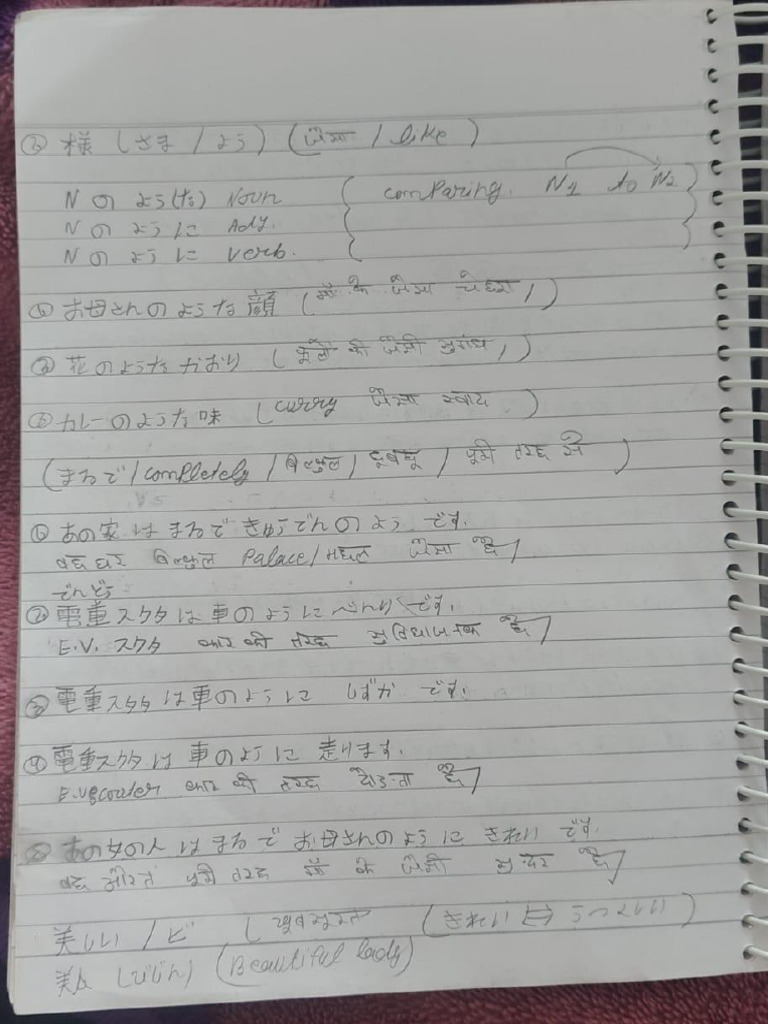 ③ 様 (さま / よう) (जैसा / like)
N の よう(な) Noun { comparing. N1 to N2 }
N の ように Adj.
N の ように Verb.
① お母さんのような顔 (माँ के जैसा चेहरा।)
② 花のようなかおり (फूलों की जैसी सुगंध।)
③ カレーのような味 (curry जैसा स्वाद)
(まるで / completely / बिल्कुल / हूबहू / पूरी तरह से)
① あの家はまるできゅうでんのようです.
वह घर बिल्कुल Palace/महल जैसा है।
でんどう
② 電重スクタは車のようにべんりです.
E.V. スクタ कार की तरह सुविधाजनक है।
③ 電重スクタは車のように しずか です.
④ 電重スクタは車のように 走ります.
E.V scouter कार की तरह दौड़ता है।
⑤ あの女の人はまるでお母さんのように きれい です.
वह औरत पूरी तरह माँ के जैसी सुन्दर है।
美しい / ビ (खूबसूरत (きれい ⇔ うつくしい)
美人 (びじん) (Beautiful lady)